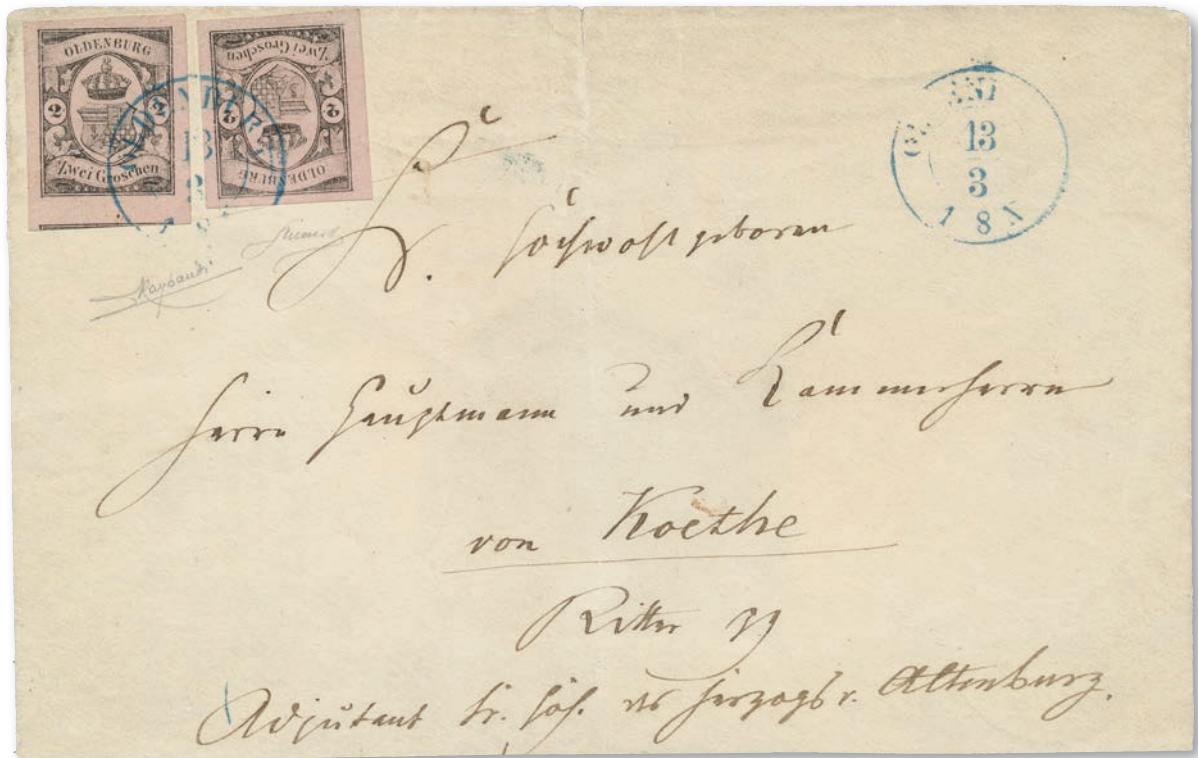 OLDENBURG
2 2
Zwei Groschen
Zwei Groschen
2 2
OLDENBURG
13
3
13
3
1 8
Sr. Hochwohlgeboren
Herrn Hauptmann und Kammerherrn
von Koethe
Ritter pp
Adjutant Sr. Hoh. des Herzogs v. Altenburg.